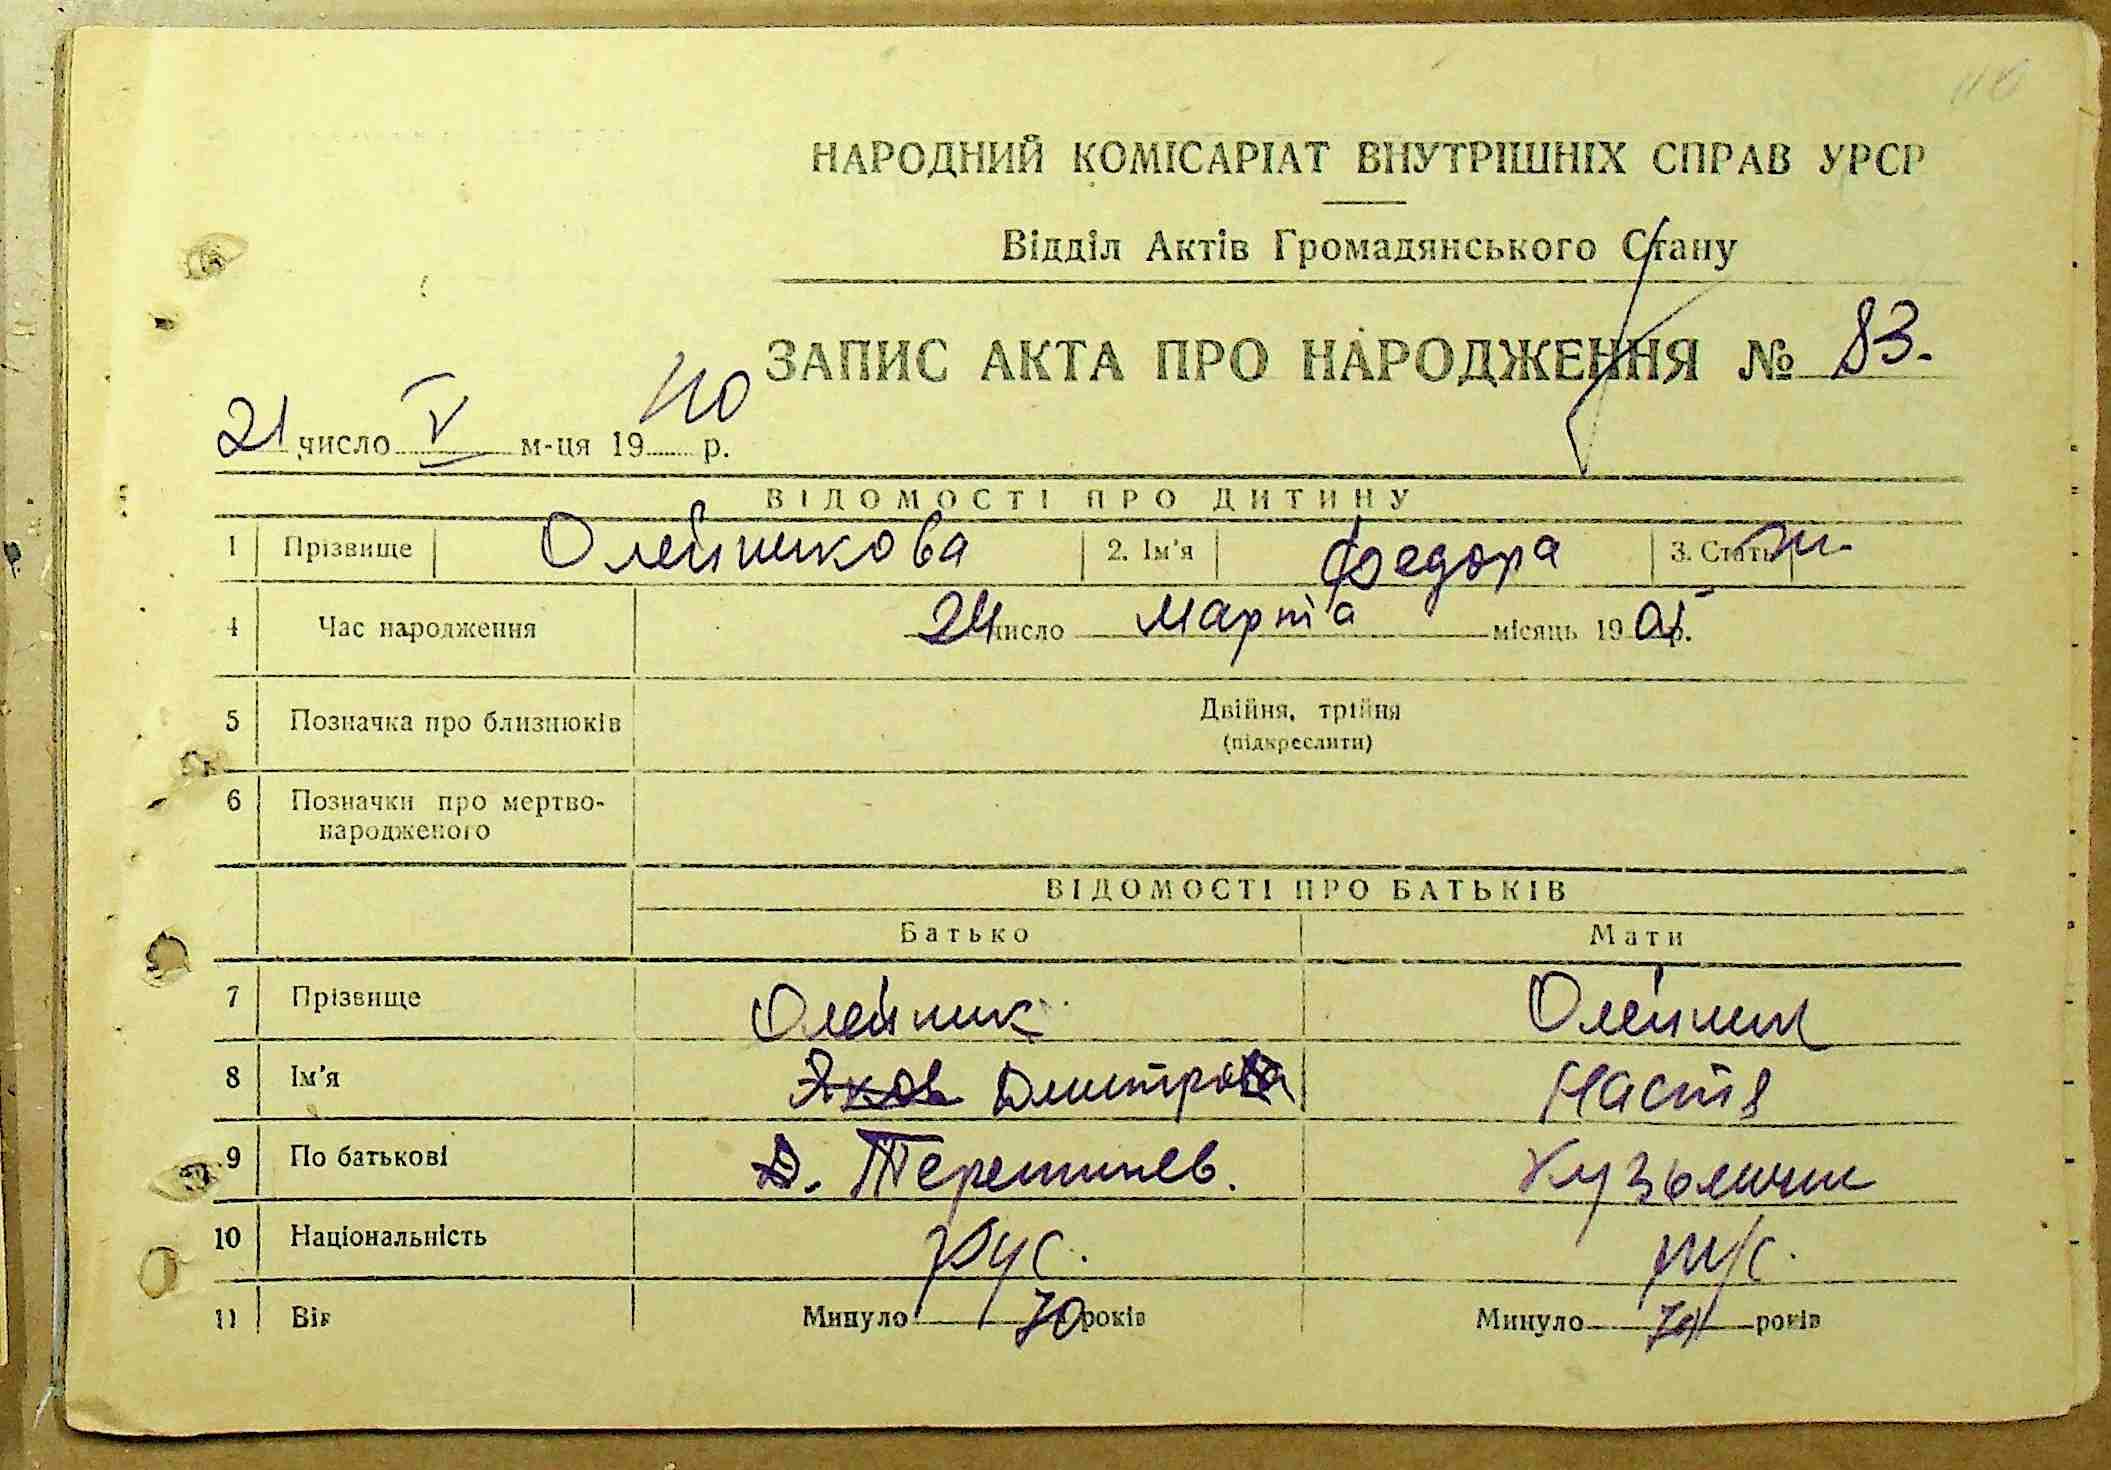 НАРОДНИЙ КОМІСАРІАТ ВНУТРІШНІХ СПРАВ УРСР
Відділ Актів Громадянського Стану
ЗАПИС АКТА ПРО НАРОДЖЕННЯ № 83.
21 число V м-ця 1940 р.
ВІДОМОСТІ ПРО ДИТИНУ
1 Прізвище Олейникова 2. Ім'я Федора 3. Стать ж.
4 Час народження 24 число Марта місяць 1905 р.
5 Позначка про близнюків Двійня, трійня
(підкреслити)
6 Позначки про мертво-
народженого
ВІДОМОСТІ ПРО БАТЬКІВ
Батько Мати
7 Прізвище Олейник Олейник
8 Ім'я Яков Дмитро Настя
9 По батькові Д. Терентиев. Кузьмичн
10 Національність рус. рус.
11 Вік Минуло 70 років Минуло років